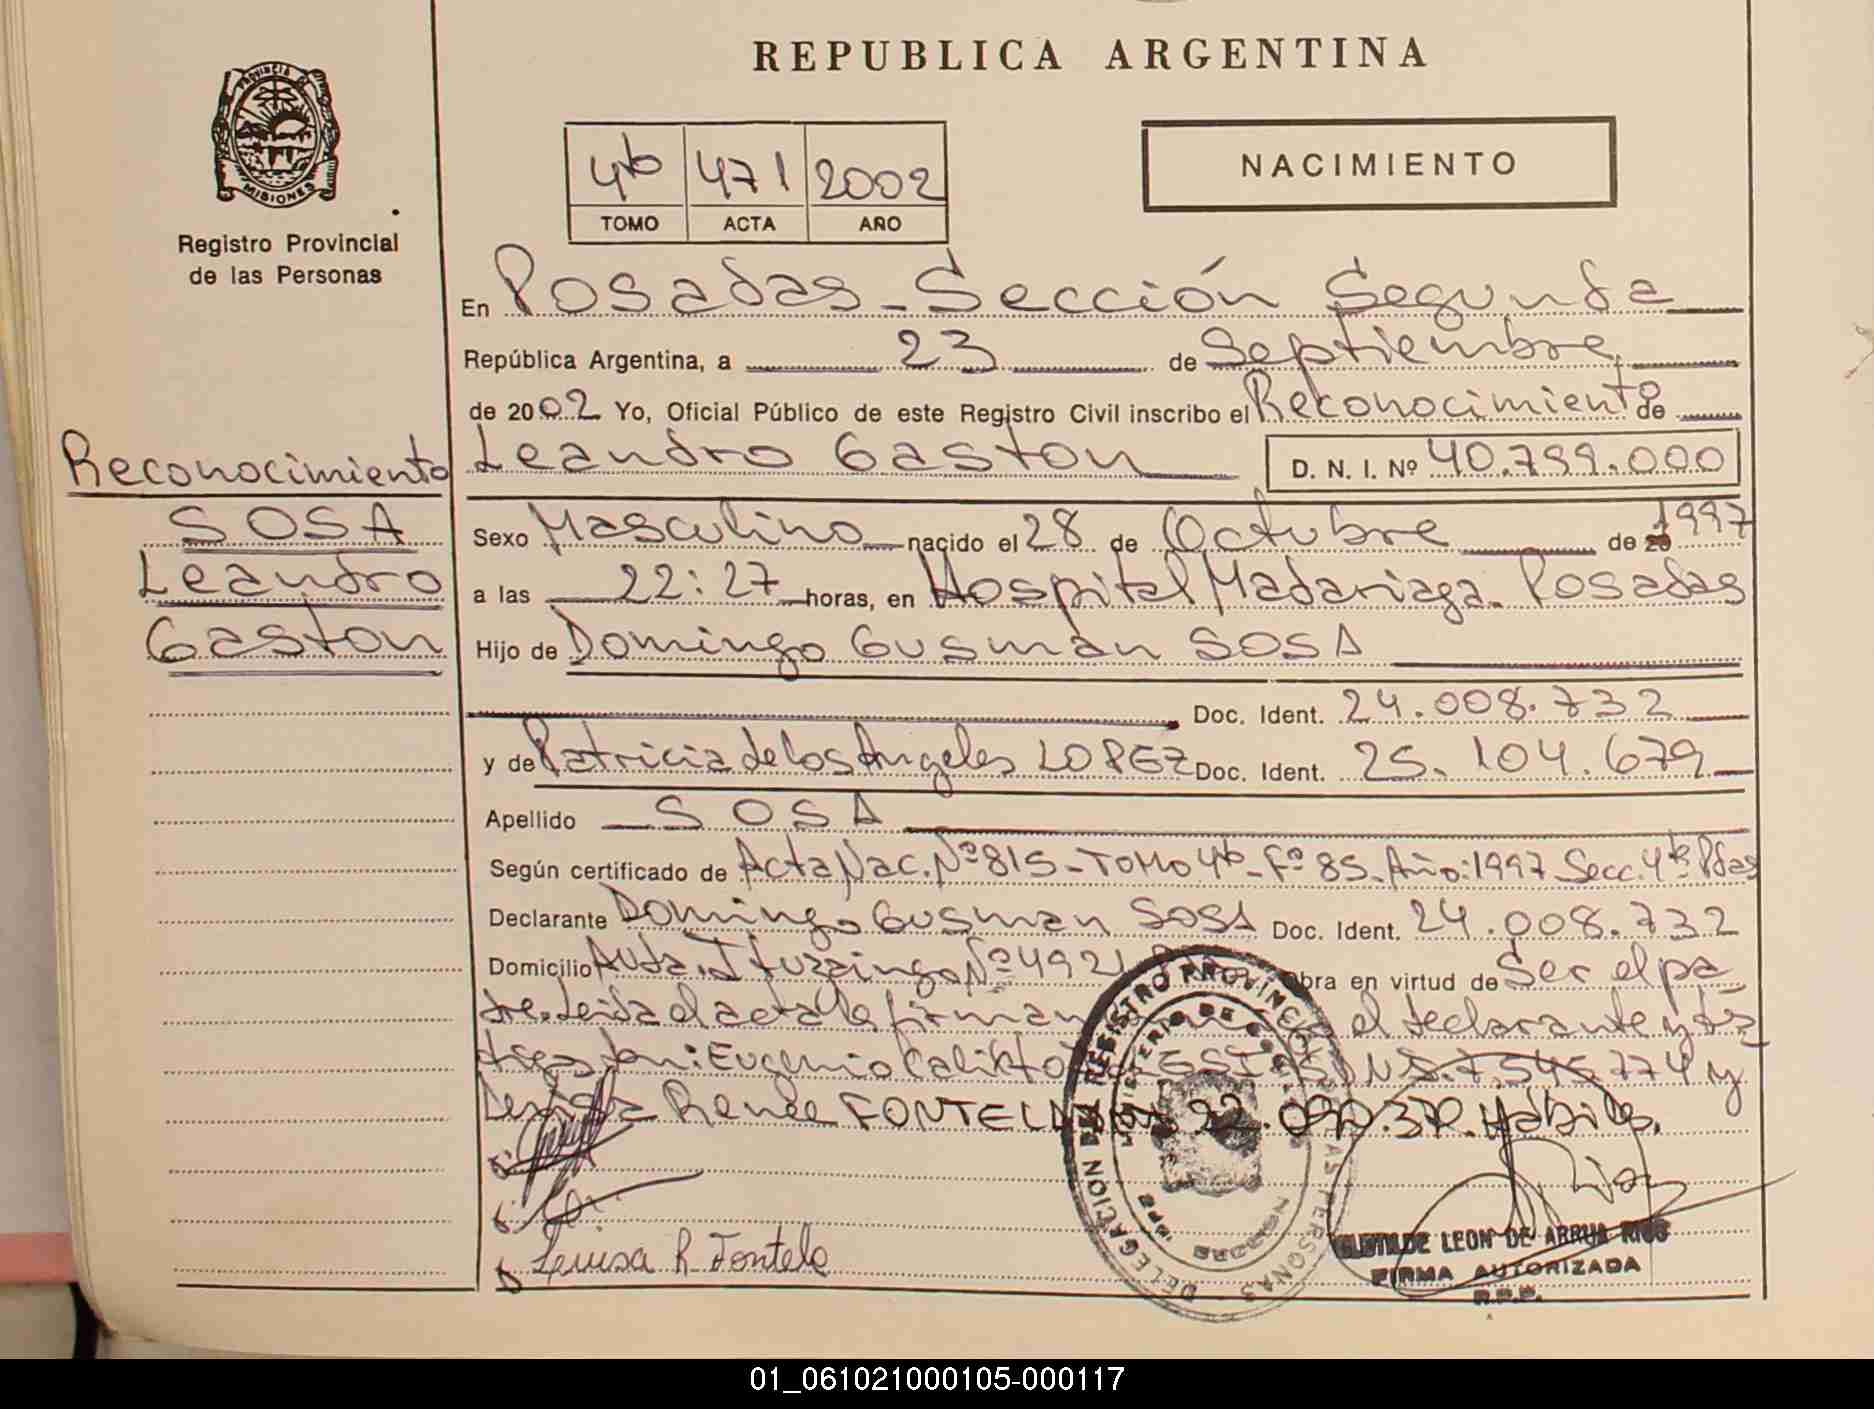 REPUBLICA ARGENTINA
PROVINCIA DE
MISIONES
Registro Provincial
de las Personas
4to 471 2002
TOMO ACTA AÑO
NACIMIENTO
En Posadas - Sección Segunda
República Argentina, a 23 de Septiembre
de 2002 Yo, Oficial Público de este Registro Civil inscribo el Reconocimiento de
Leandro Gaston D. N. I. Nº 40.799.000
Reconocimiento
SOSA
Leandro
Gaston
Sexo Masculino nacido el 28 de Octubre de 1997
a las 22:27 horas, en Hospital Madariaga - Posadas
Hijo de Domingo Gusman SOSA
Doc. Ident. 24.008.732
y de Patricia de los Angeles LOPEZ Doc. Ident. 25.104.679
Apellido SOSA
Según certificado de Acta Nac. Nº 815 - TOMO 4to - Fº 85 - Año: 1997 Secc. 4ta Pdas
Declarante Domingo Gusman SOSA Doc. Ident. 24.008.732
Domicilio Avda. Ituzaingo Nº 4921 Obra en virtud de Ser el pa
dre. Leida el acta la firman el declarante y
Eugenio Calixto 7.545.774 y
Renée 22.090.
Luisa R. Fontela
DELEGACION DEL REGISTRO PROVINCIAL DE LAS PERSONAS
MINISTERIO DE
LEON DE ARRUA RIOS
FIRMA AUTORIZADA
R.P.P.
01_061021000105-000117